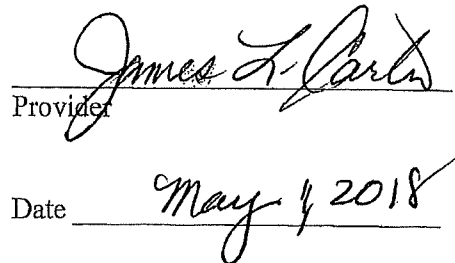 James L. Carter
Provider
Date May 1, 2018